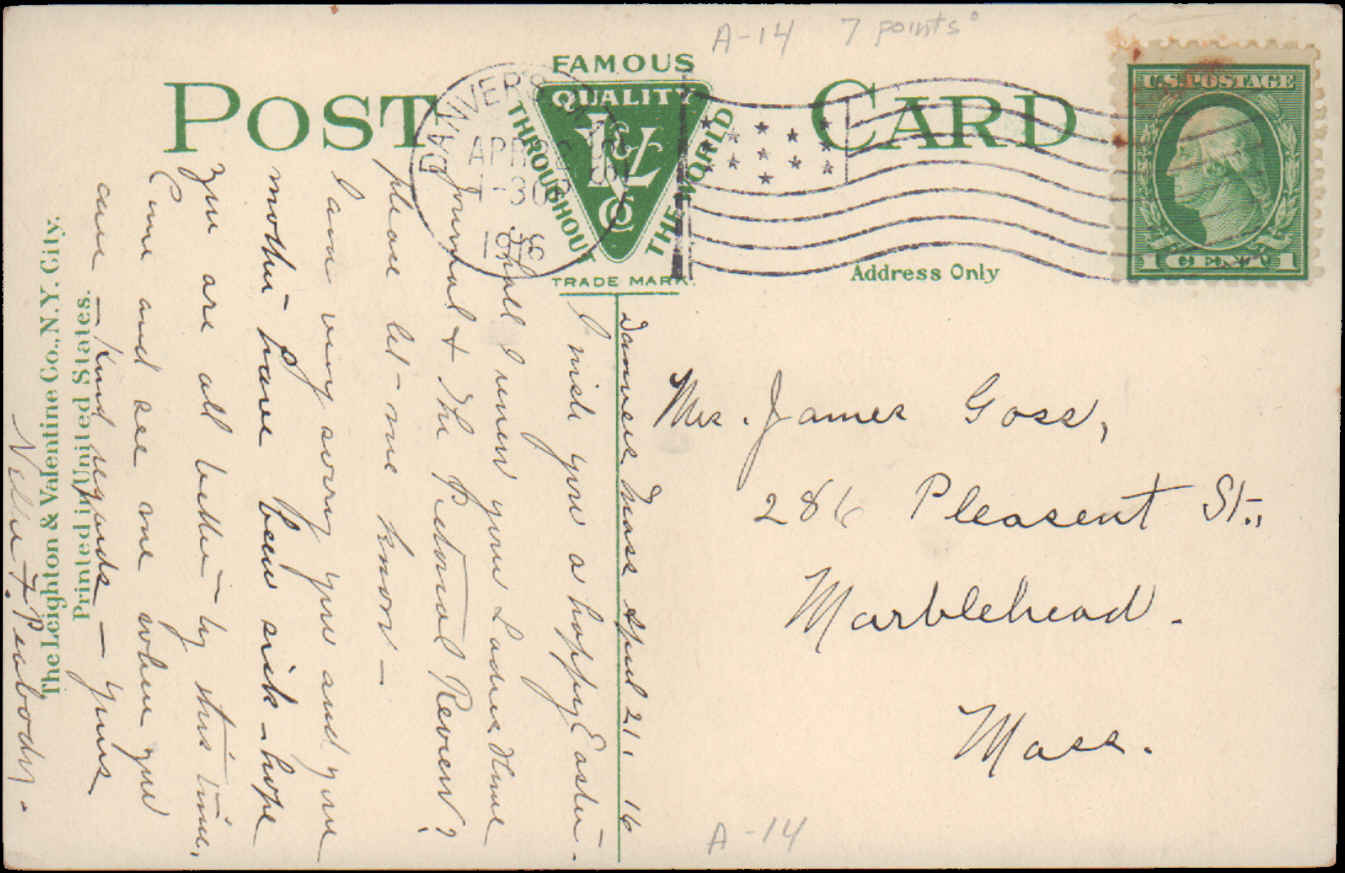 A-14 7 points
POST CARD
FAMOUS
QUALITY
THROUGHOUT THE WORLD
L&V
Co
TRADE MARK
DANVERS
APR
7-30 P
1916
U.S. POSTAGE
1 CENT 1
Address Only
Danvers Mass April 21, 16
I wish you a happy Easter.
Shall I renew your Ladies Home
Journal & The Pictorial Review?
please let me know -
I am very sorry you and your
mother have been sick - hope
you are all better by this time,
Come and see me when you
can - Kind regards - yours
Nellie F. Peabody.
Mrs. James Goss,
286 Pleasent St.,
Marblehead.
Mass.
The Leighton & Valentine Co., N.Y. City.
Printed in United States.
A-14